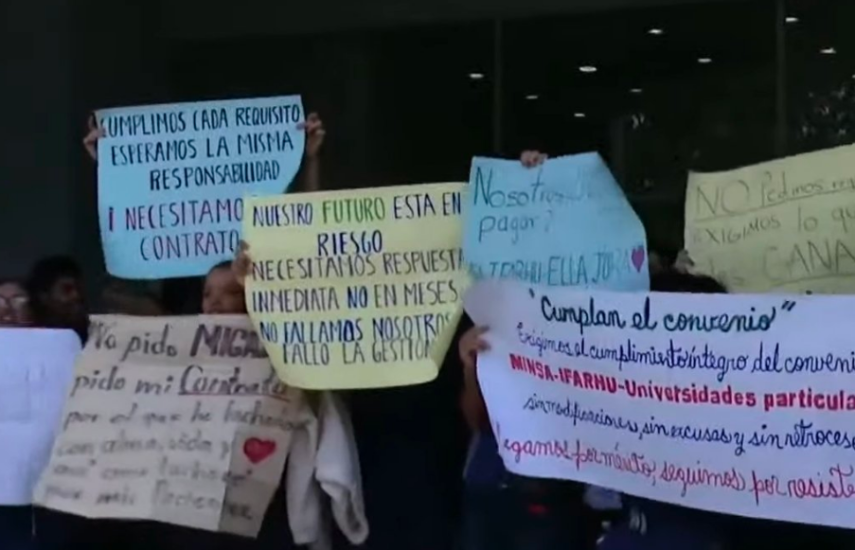 CUMPLIMOS CADA REQUISITO
ESPERAMOS LA MISMA
RESPONSABILIDAD
¡ NECESITAMO
CONTRATO
NUESTRO FUTURO ESTA EN
RIESGO
NECESITAMOS RESPUEST
INMEDIATA NO EN MESES
NO FALLAMOS NOSOTROS
FALLO LA GESTION
Nosotros
pagar?
IFARHU ELLA
NO Pedimos
EXIGIMOS lo
GANA
No pido MIGA
pido mi Contrato
por el que he luchado
con alma, vida y
"Cumplan el convenio"
Exigimos el cumplimiento íntegro del conveni
MINSA-IFARHU-Universidades particula
sin modificaciones, sin excusas y sin retroceso
legamos por mérito, seguimos por resiste